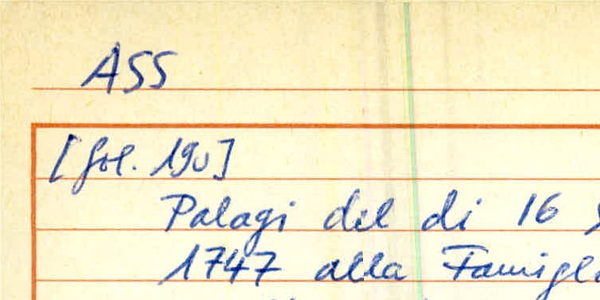 ASS
[fol. 19v]
Palagi del di 16
1747 alla